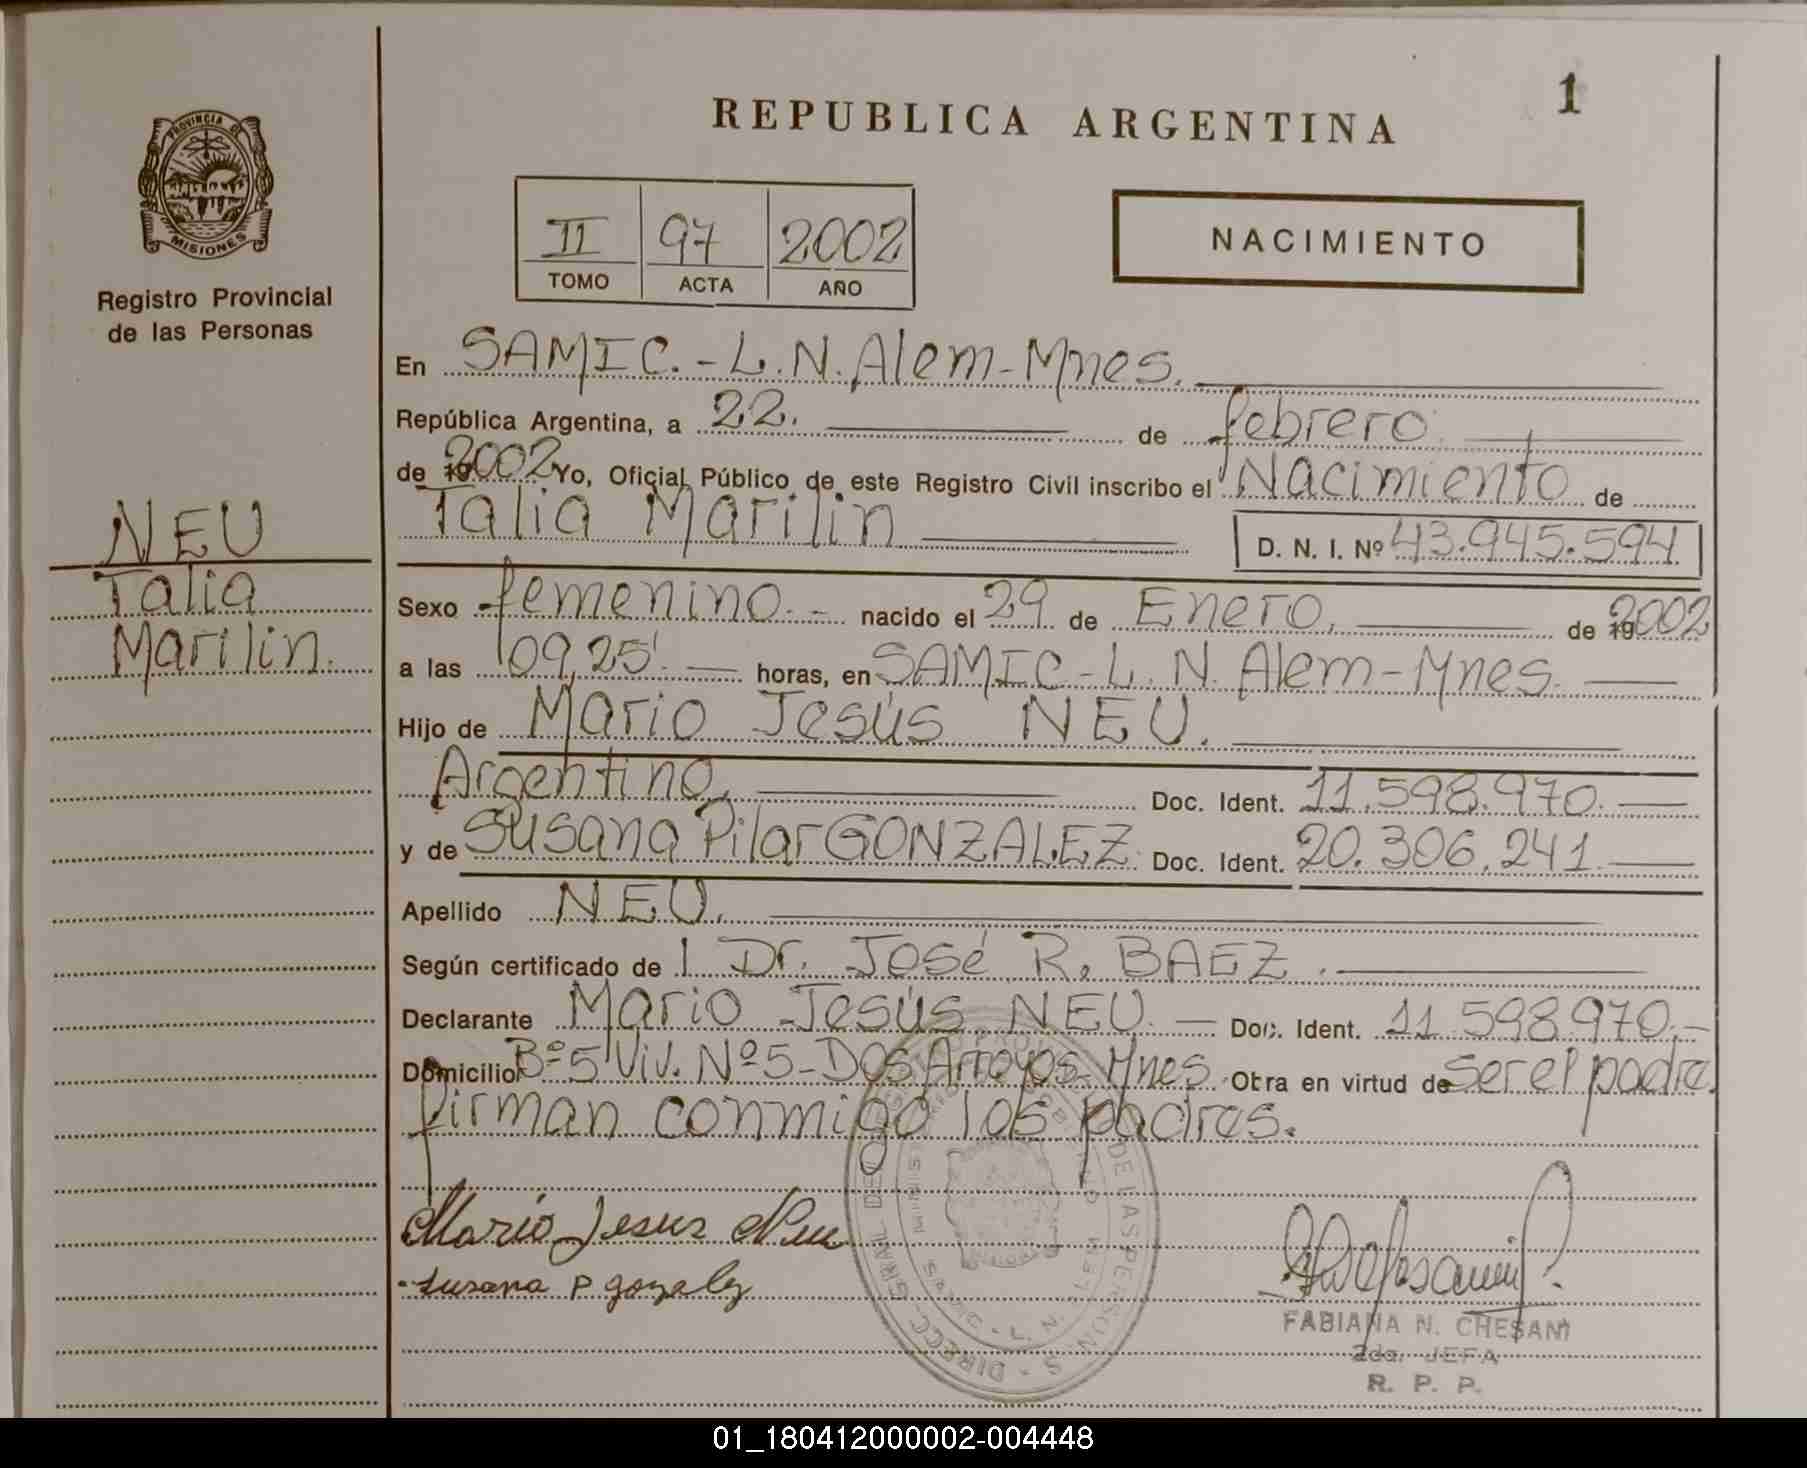 REPUBLICA ARGENTINA
1
PROVINCIA DE
MISIONES
Registro Provincial
de las Personas
II 97 2002
TOMO ACTA AÑO
NACIMIENTO
En SAMIC.-L.N.Alem-Mnes.
República Argentina, a 22. de febrero.
de 2002 Yo, Oficial Público de este Registro Civil inscribo el Nacimiento de
Talia Marilin D. N. I. Nº 43.945.594
NEU
Talia
Marilin.
Sexo femenino.- nacido el 29 de Enero, de 2002
a las 09,25' horas, en SAMIC-L.N.Alem-Mnes.
Hijo de Mario Jesús NEU.
Argentino, Doc. Ident. 11.598.970.
y de Susana Pilar GONZALEZ. Doc. Ident. 20.306.241.
Apellido NEU.
Según certificado de l Dr. José R. BAEZ.
Declarante Mario Jesús NEU. Doc. Ident. 11.598.970.-
Domicilio Bº 5 Viv. Nº 5-Dos Arroyos-Mnes. Otra en virtud de ser el padre.
firman conmigo los padres.
Mario Jesus Neu
Susana P gonzalez
FABIANA N. CHESANI
2da. JEFA
R. P. P.
01_180412000002-004448